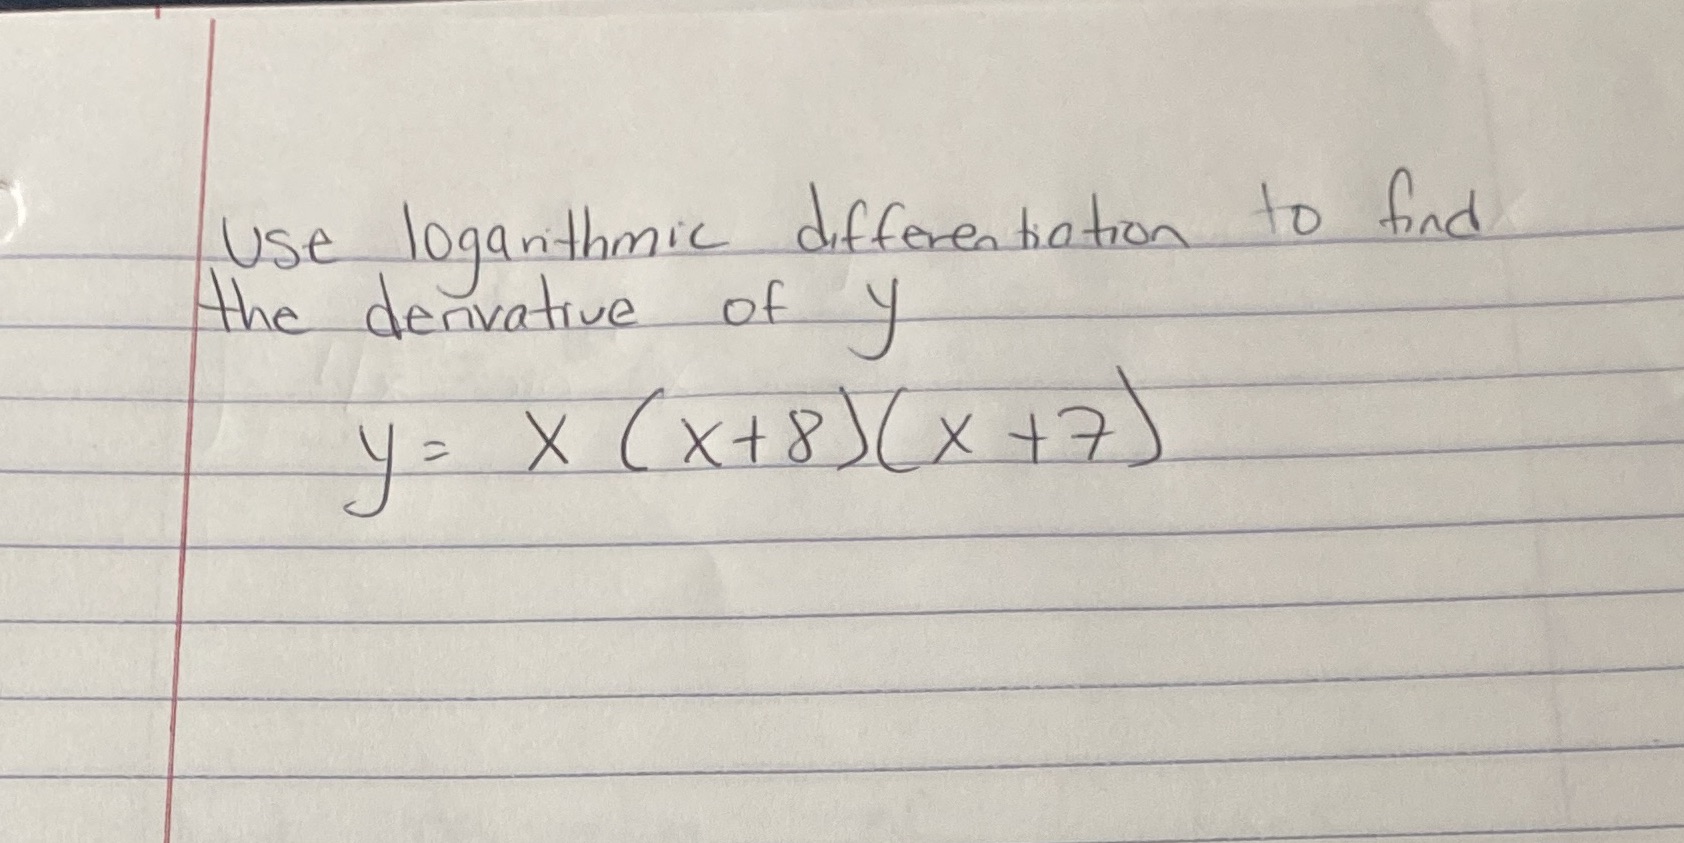 Use logarithmic differentiation to find
the derivative of y
y = x (x+8)(x+7)